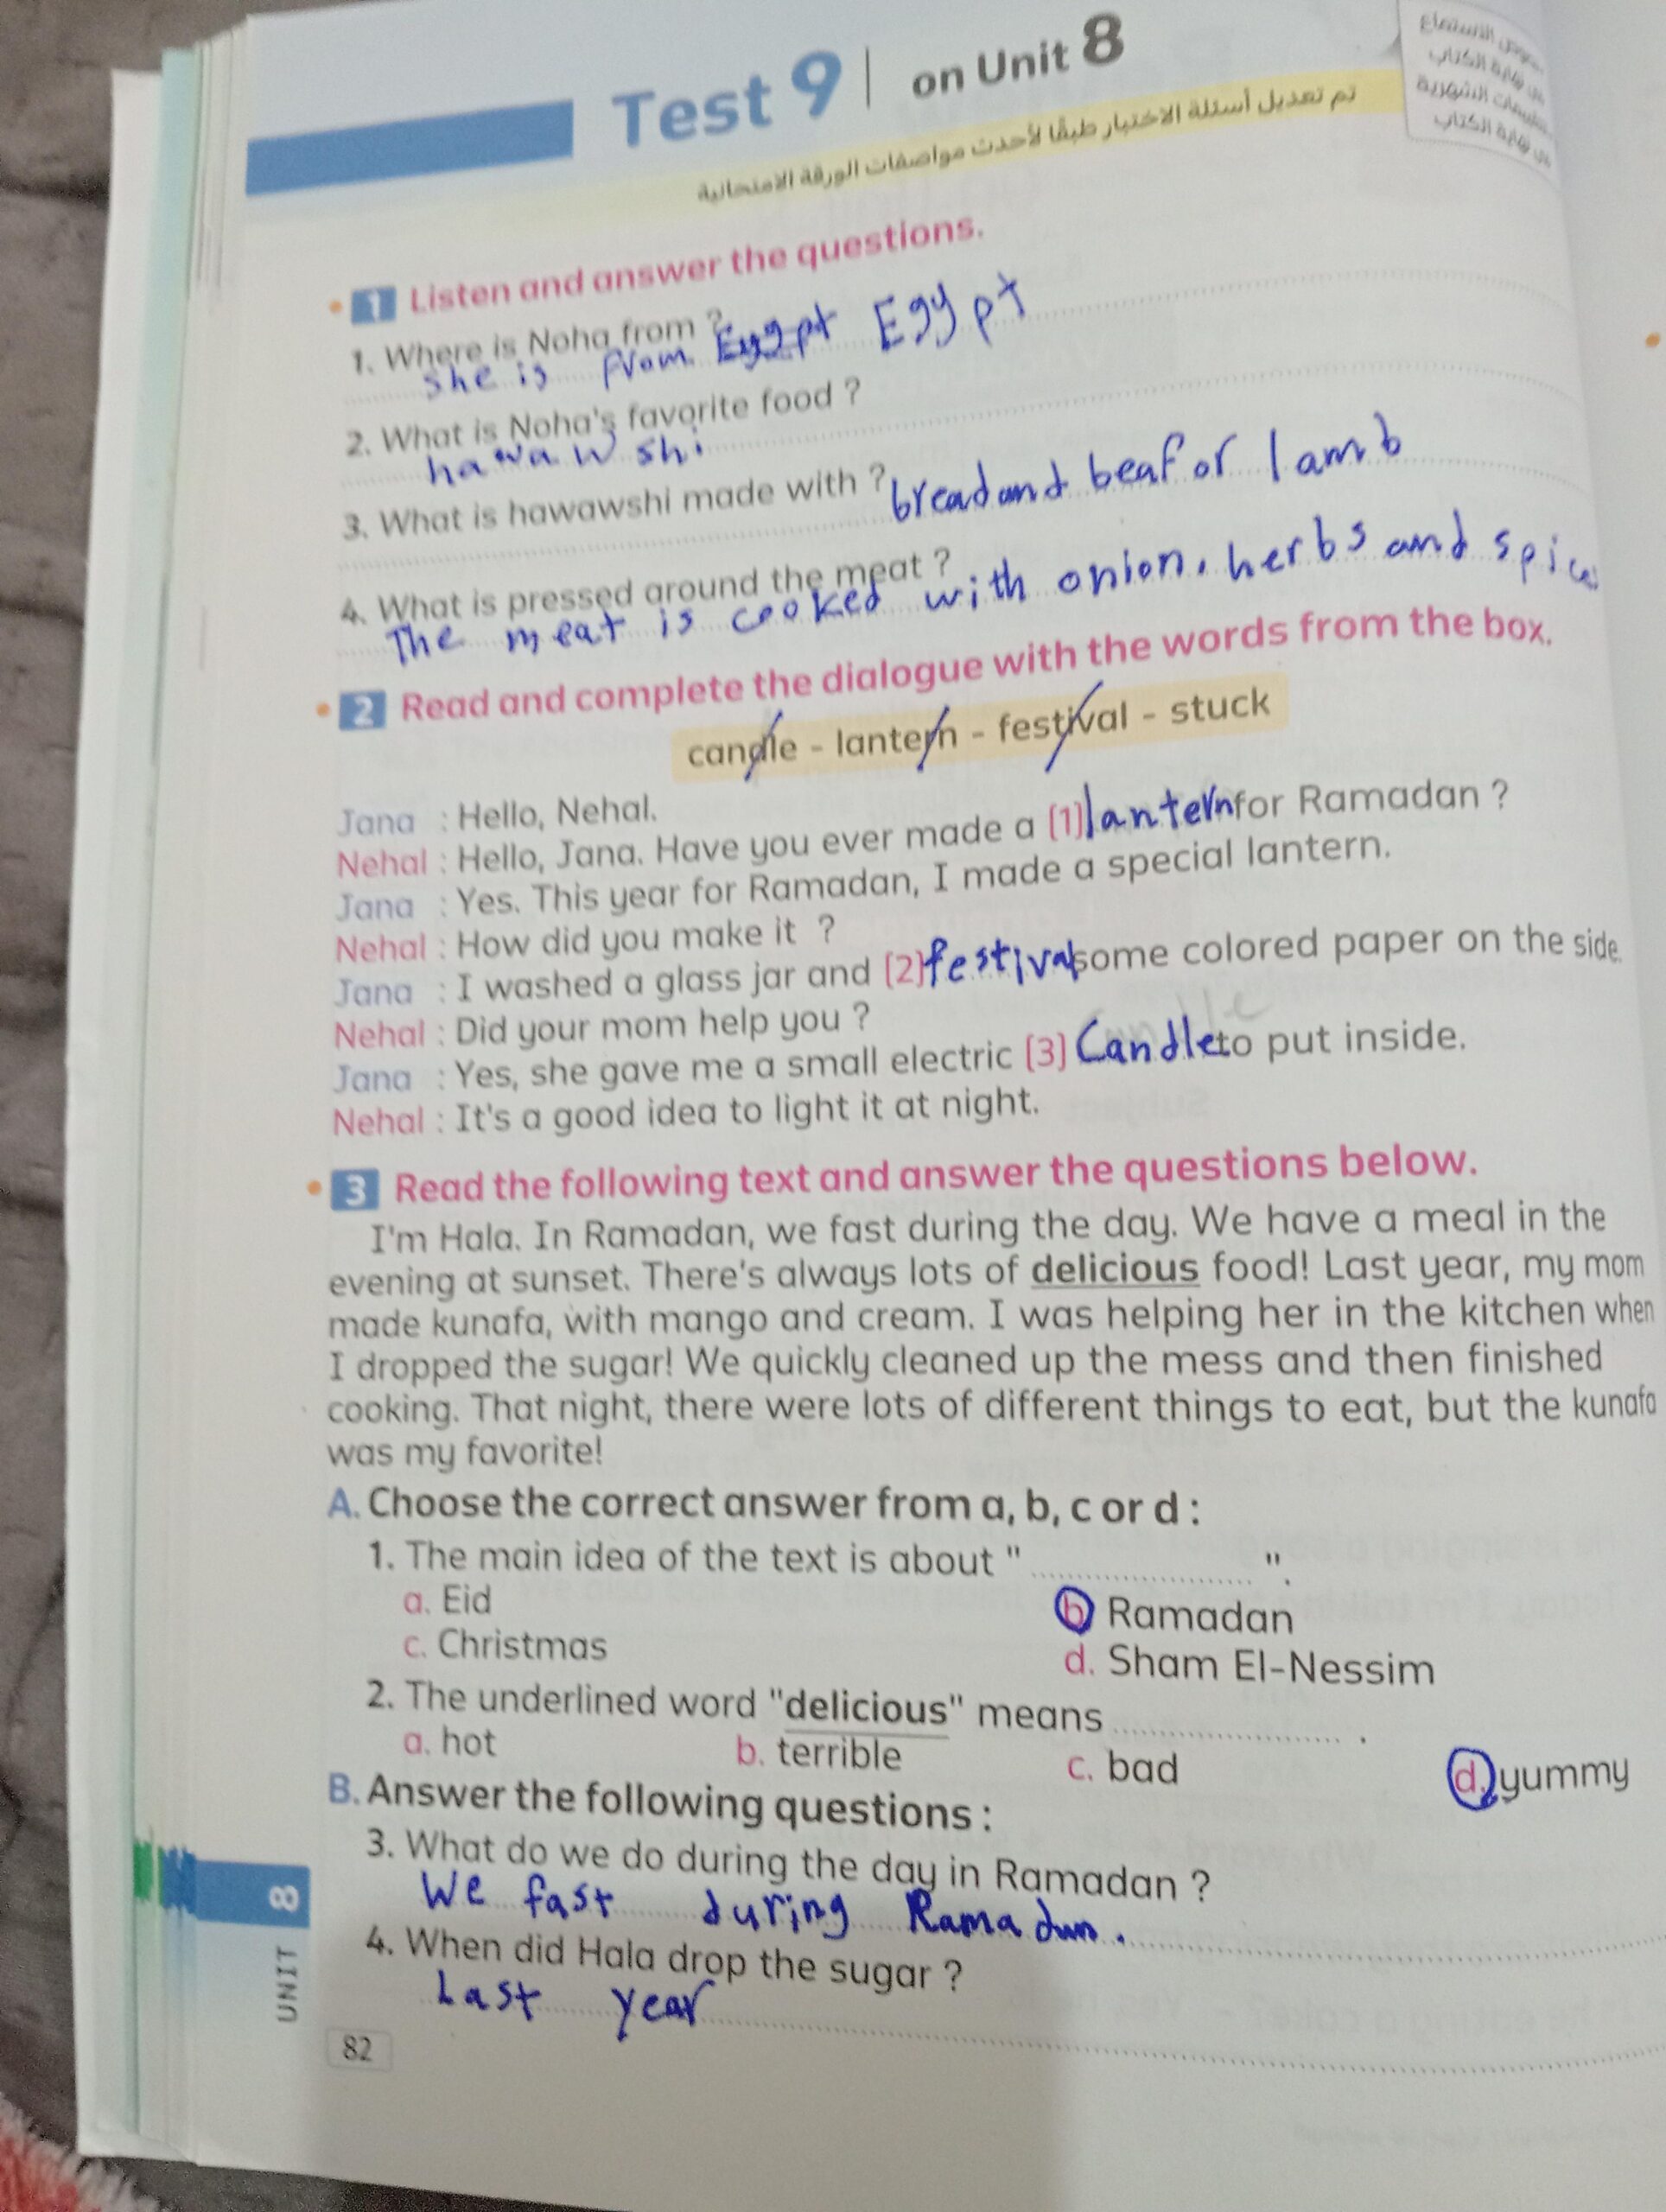 Test 9 | on Unit 8
تم تعديل أسئلة الاختبار طبقًا لأحدث مواصفات الورقة الامتحانية
نصوص الاستماع
نهاية الكتاب
الشهرية
نهاية الكتاب
1 Listen and answer the questions.
1. Where is Noha from ?
she is from Eygpt Egypt
2. What is Noha's favorite food ?
hawawshi
3. What is hawawshi made with ? bread and beaf or lamb
4. What is pressed around the meat ?
The meat is cooked with onion, herbs and
2 Read and complete the dialogue with the words from the box.
candle - lantern - festival - stuck
Jana : Hello, Nehal.
Nehal : Hello, Jana. Have you ever made a (1) lantern for Ramadan ?
Jana : Yes. This year for Ramadan, I made a special lantern.
Nehal : How did you make it ?
Jana : I washed a glass jar and (2) festival some colored paper on the side.
Nehal : Did your mom help you ?
Jana : Yes, she gave me a small electric (3) Candle to put inside.
Nehal : It's a good idea to light it at night.
3 Read the following text and answer the questions below.
I'm Hala. In Ramadan, we fast during the day. We have a meal in the
evening at sunset. There's always lots of delicious food! Last year, my mom
made kunafa, with mango and cream. I was helping her in the kitchen when
I dropped the sugar! We quickly cleaned up the mess and then finished
cooking. That night, there were lots of different things to eat, but the kunafa
was my favorite!
A. Choose the correct answer from a, b, c or d :
1. The main idea of the text is about " .................... ".
a. Eid b. Ramadan
c. Christmas d. Sham El-Nessim
2. The underlined word "delicious" means .................... .
a. hot b. terrible c. bad d. yummy
B. Answer the following questions :
3. What do we do during the day in Ramadan ?
We fast during Ramadan.
4. When did Hala drop the sugar ?
Last year
UNIT 8
82